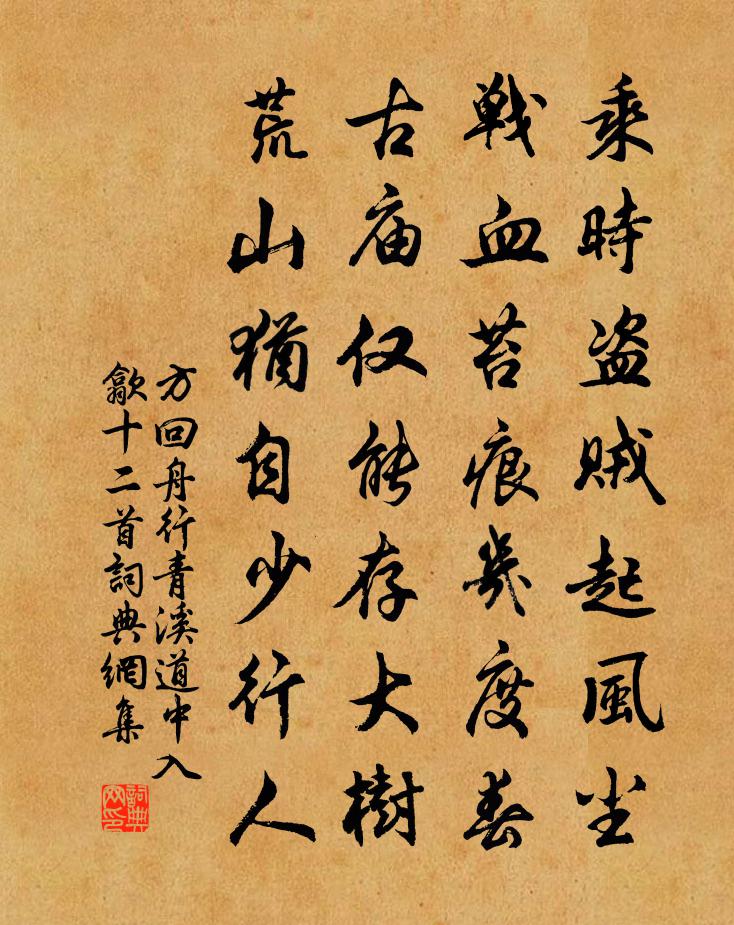 乘時盗賊起風尘
戦血苔痕幾度春
古庙仅能存大樹
荒山猶自少行人
方回舟行青溪道中入
歙十二首詞典網集
詞典網印